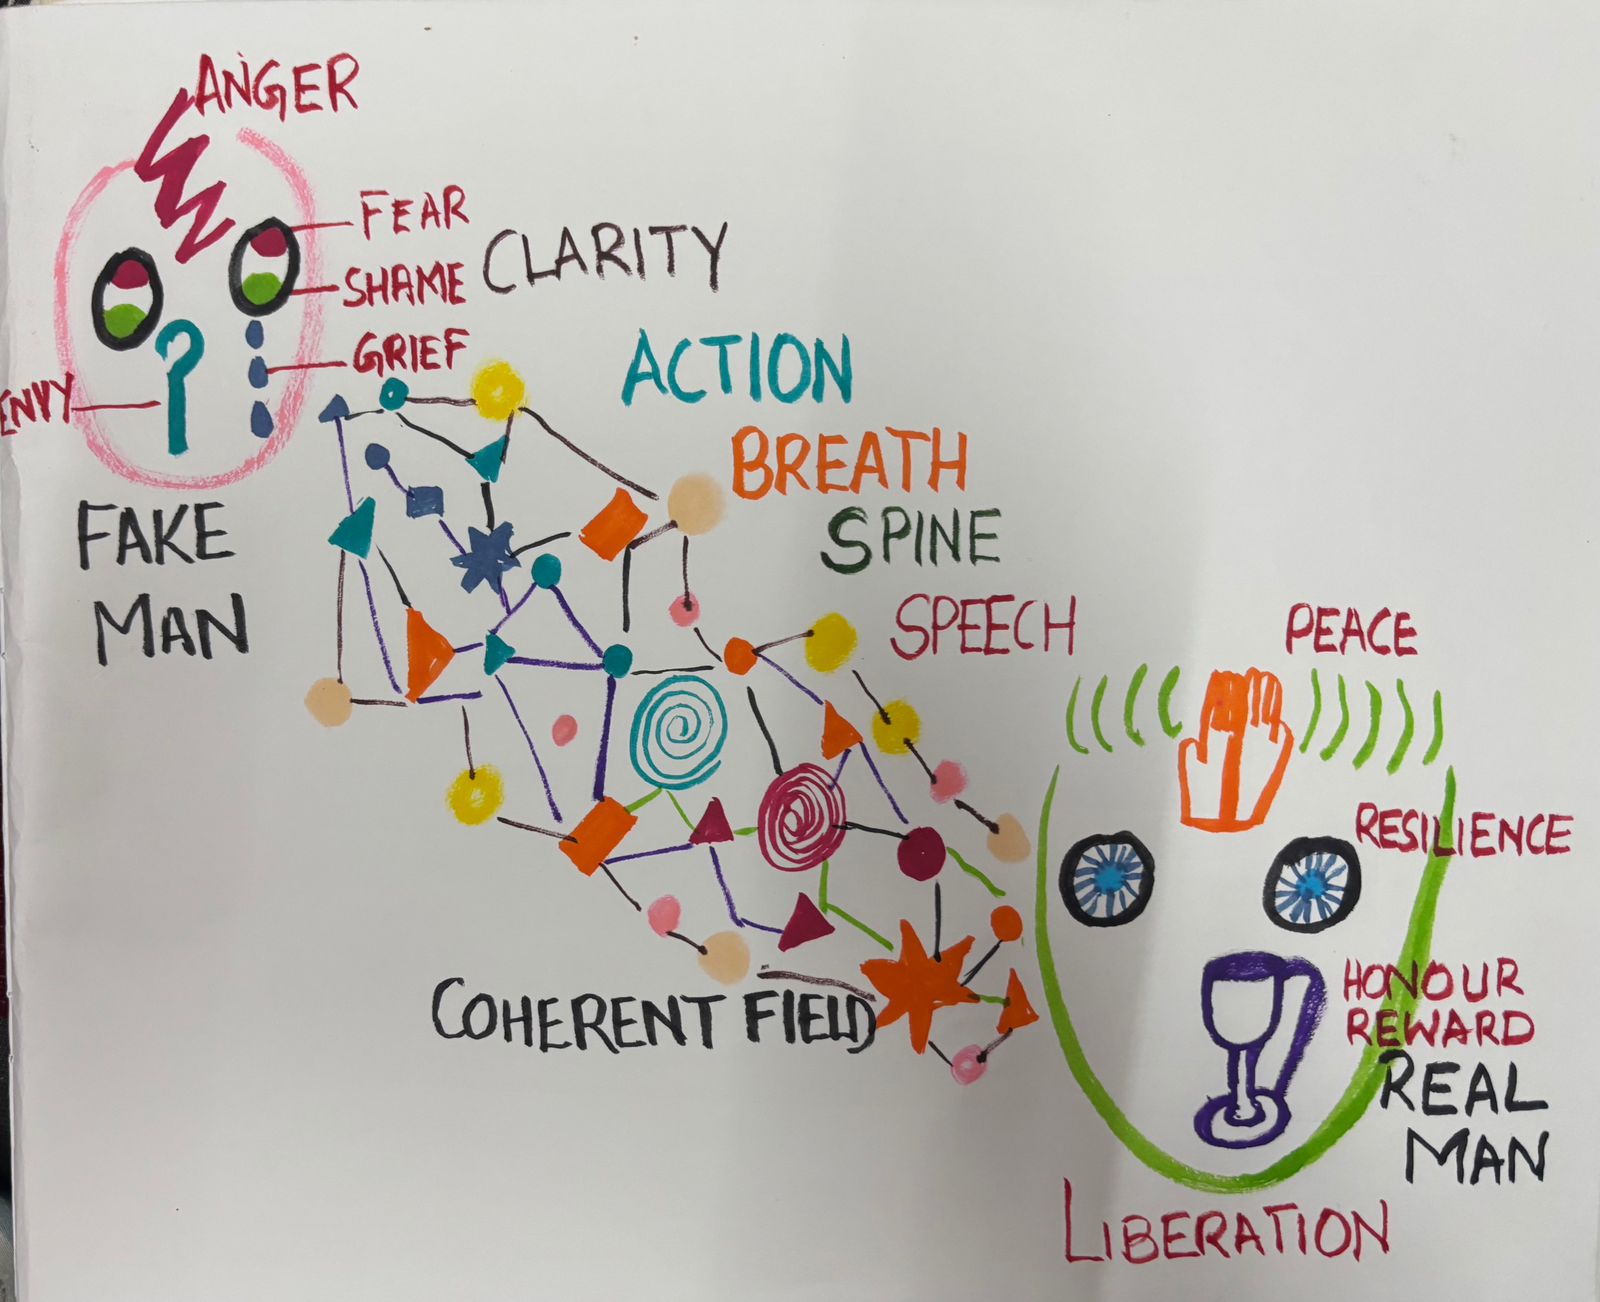 ANGER
FEAR
SHAME
GRIEF
ENVY
FAKE
MAN
CLARITY
ACTION
BREATH
SPINE
SPEECH
COHERENT FIELD
PEACE
RESILIENCE
HONOUR
REWARD
REAL
MAN
LIBERATION